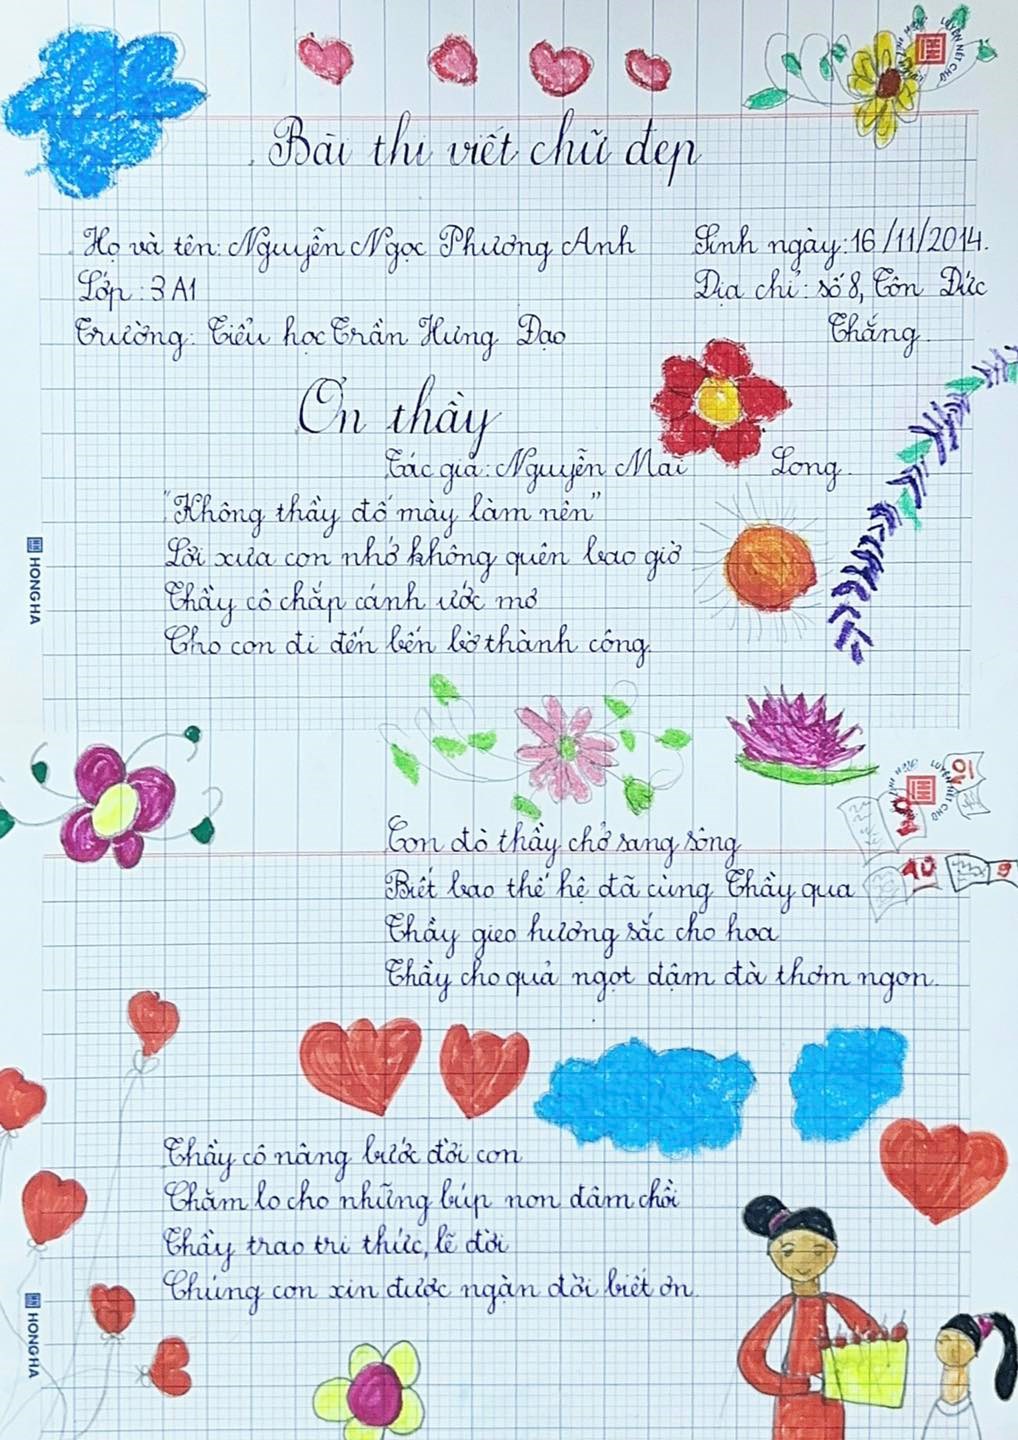 Bài thi viết chữ đẹp
Họ và tên: Nguyễn Ngọc Phương Anh
Sinh ngày: 16/11/2014.
Lớp: 3A1
Địa chỉ: số 8, Tôn Đức
Trường: Tiểu học Trần Hưng Đạo
Thắng.
Ơn thầy
Tác giả: Nguyễn Mai Long.
"Không thầy đố mày làm nên"
Lời xưa con nhớ không quên bao giờ
Thầy cô chắp cánh ước mơ
Cho con đi đến bến bờ thành công.
HONG HA
LUYỆN NÉT CHỮ
Con đò thầy chở sang sông
Biết bao thế hệ đã cùng Thầy qua
Thầy gieo hương sắc cho hoa
Thầy cho quả ngọt đậm đà thơm ngon.
LUYỆN NÉT CHỮ
10
10
9
Thầy cô nâng bước đời con
Chăm lo cho những búp non đâm chồi
Thầy trao tri thức, lẽ đời
Chúng con xin được ngàn đời biết ơn.
HONG HA